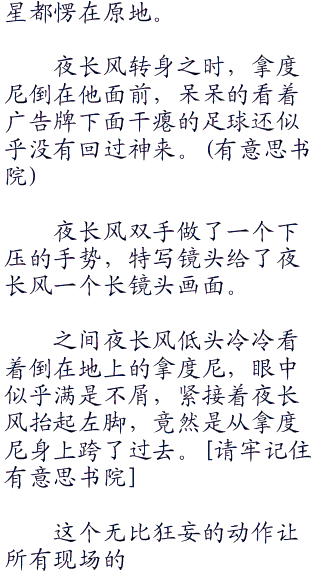 星都愣在原地。
夜长风转身之时，拿度
尼倒在他面前，呆呆的看着
广告牌下面干瘪的足球还似
乎没有回过神来。(有意思书
院)
夜长风双手做了一个下
压的手势，特写镜头给了夜
长风一个长镜头画面。
之间夜长风低头冷冷看
着倒在地上的拿度尼，眼中
似乎满是不屑，紧接着夜长
风抬起左脚，竟然是从拿度
尼身上跨了过去。[请牢记住
有意思书院]
这个无比狂妄的动作让
所有现场的